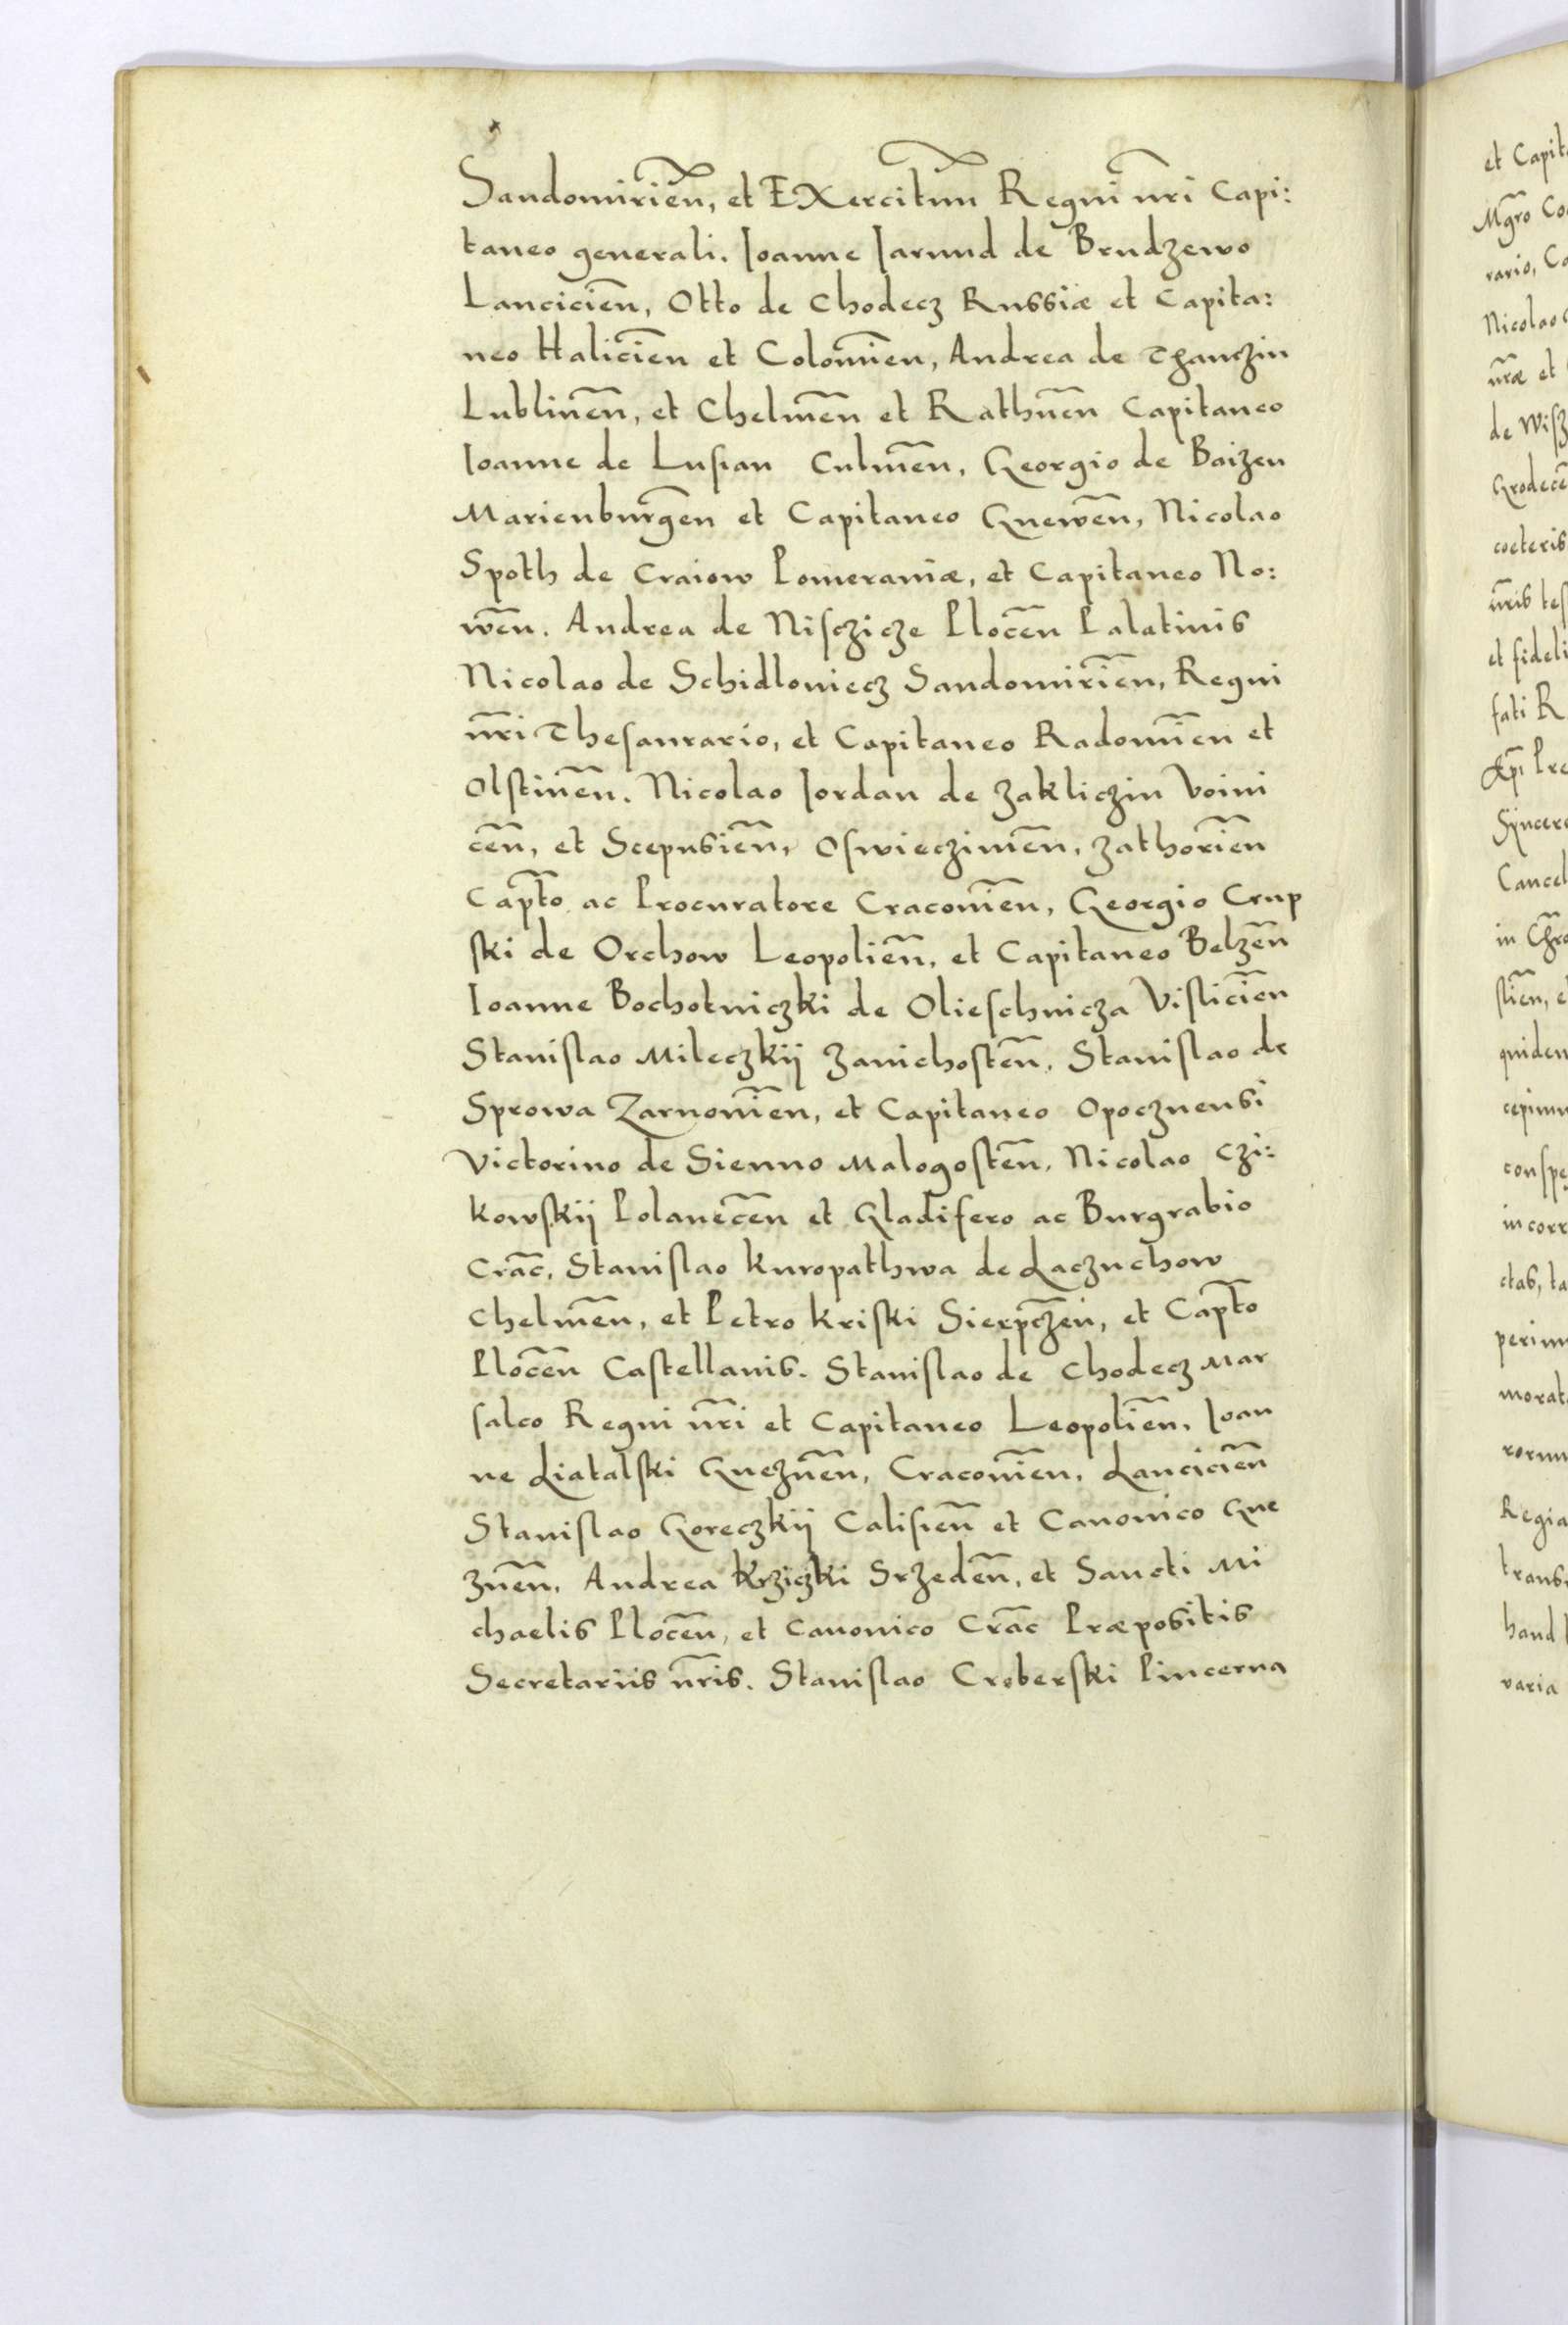 Sandomirień, et EXercituum Regni nr̃i Capi:
taneo generali. Ioanne Iarund de Brudzewo
Lancicień, Otto de Chodecz Russiæ et Capita:
neo Halicień et Colomień, Andrea de Thanczin
Lublineñ, et Chelmeñ et Rathneñ Capitaneo
Ioanne de Lusian Culmeñ, Georgio de Baizen
Marienburgeñ et Capitaneo Gneweñ, Nicolao
Spoth de Craiow Pomeraniæ, et Capitaneo No:
weñ. Andrea de Nisczicze Ploceñ Palatinis
Nicolao de Schidloviecz Sandomirień, Regni
nr̃i Thesaurario, et Capitaneo Radomień et
Olstineñ. Nicolao Iordan de Zakliczin Voini
ceñ, et Scepusień, Oswiecimeñ, Zathorień
Capt̃o ac Procuratore Cracovień, Georgio Crup
ski de Orchow Leopolień, et Capitaneo Belzeñ
Ioanne Bochotniczki de Olieschnicza Vislicień
Stanislao Mileczkij Zavichosteñ, Stanislao de
Sprowa Zarnovień, et Capitaneo Opocznensi
Victorino de Sienno Malogosteñ, Nicolao Czi:
kowskij Polaneceñ et Gladifero ac Burgrabio
Crac̃, Stanislao Kuropathwa de Laczuchow
Chelmeñ, et Petro Kriski Sierpczeñ, et Capt̃o
Ploceñ Castellanis. Stanislao de Chodecz Mar
salco Regni nr̃i et Capitaneo Leopolień, Ioan
ne Liatalski Gnezneñ, Cracovień, Lancicień
Stanislao Goreczkij Calisień et Canonico Gne
zneñ, Andrea Krziczki Srzedeñ, et Sancti Mi
chaelis Ploceñ, et Canonico Crac̃ Præpositis
Secretariis nr̃is. Stanislao Croberski Pincerna
et Capit
Mgr̃o Co
rario, Ca
Nicolao
nr̃æ et
de Wisz
Grodece
coeteris
nr̃is tes
et fideli
fati R
Pre
Syncere
Cancel
in Chr̃o
quidem
conspe
in corr
ctas, ta
morat
Regia
trans
haud
varia